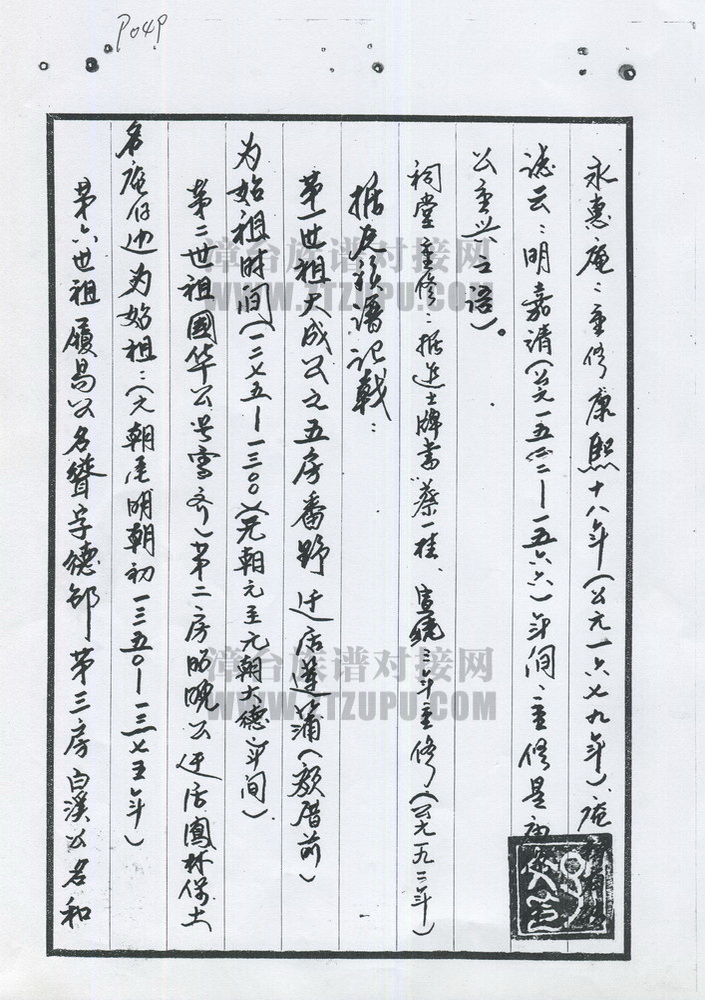 P049
永惠庵：重修康熙十八年（公元一六七九年）、庵
志云：明嘉请（公元一五二二—一五六六）年间：重修是
公重兴之语）。
祠堂重修：据进士牌书蔡一桂、宣统三年重修（公元一九一二年）
据友族谱记载：
第一世祖大成公之五房番野迁居莲蒲（颜厝前）
为始祖时间（一二七五—一三〇〇）（元朝元至元朝大德年间）
第二世祖國华公号雪斋）第二房昭晚公迁居鳳林保土
名庵仔边为始祖：（元朝尾明朝初一三五〇—一三七五年）
第六世祖履昌公名聳字德郃 第三房白溪公名和
漳台族谱对接网
WWW.ZTZUPU.COM
漳台族谱对接网
WWW.ZTZUPU.COM